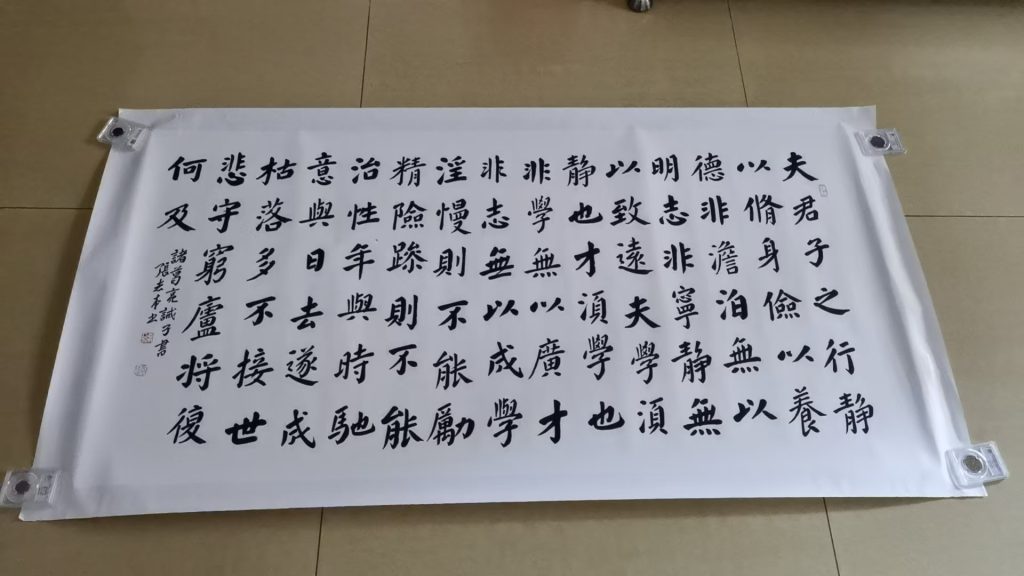 夫君子之行静
以脩身儉以養
德非澹泊無以
明志非寧静無
以致遠夫學須
静也才須學也
非學無以廣才
非志無以成學
淫慢則不能勵
精險躁則不能
治性年與時馳
意與日去遂成
枯落多不接世
悲守窮廬将復
何及
諸葛亮誡子書